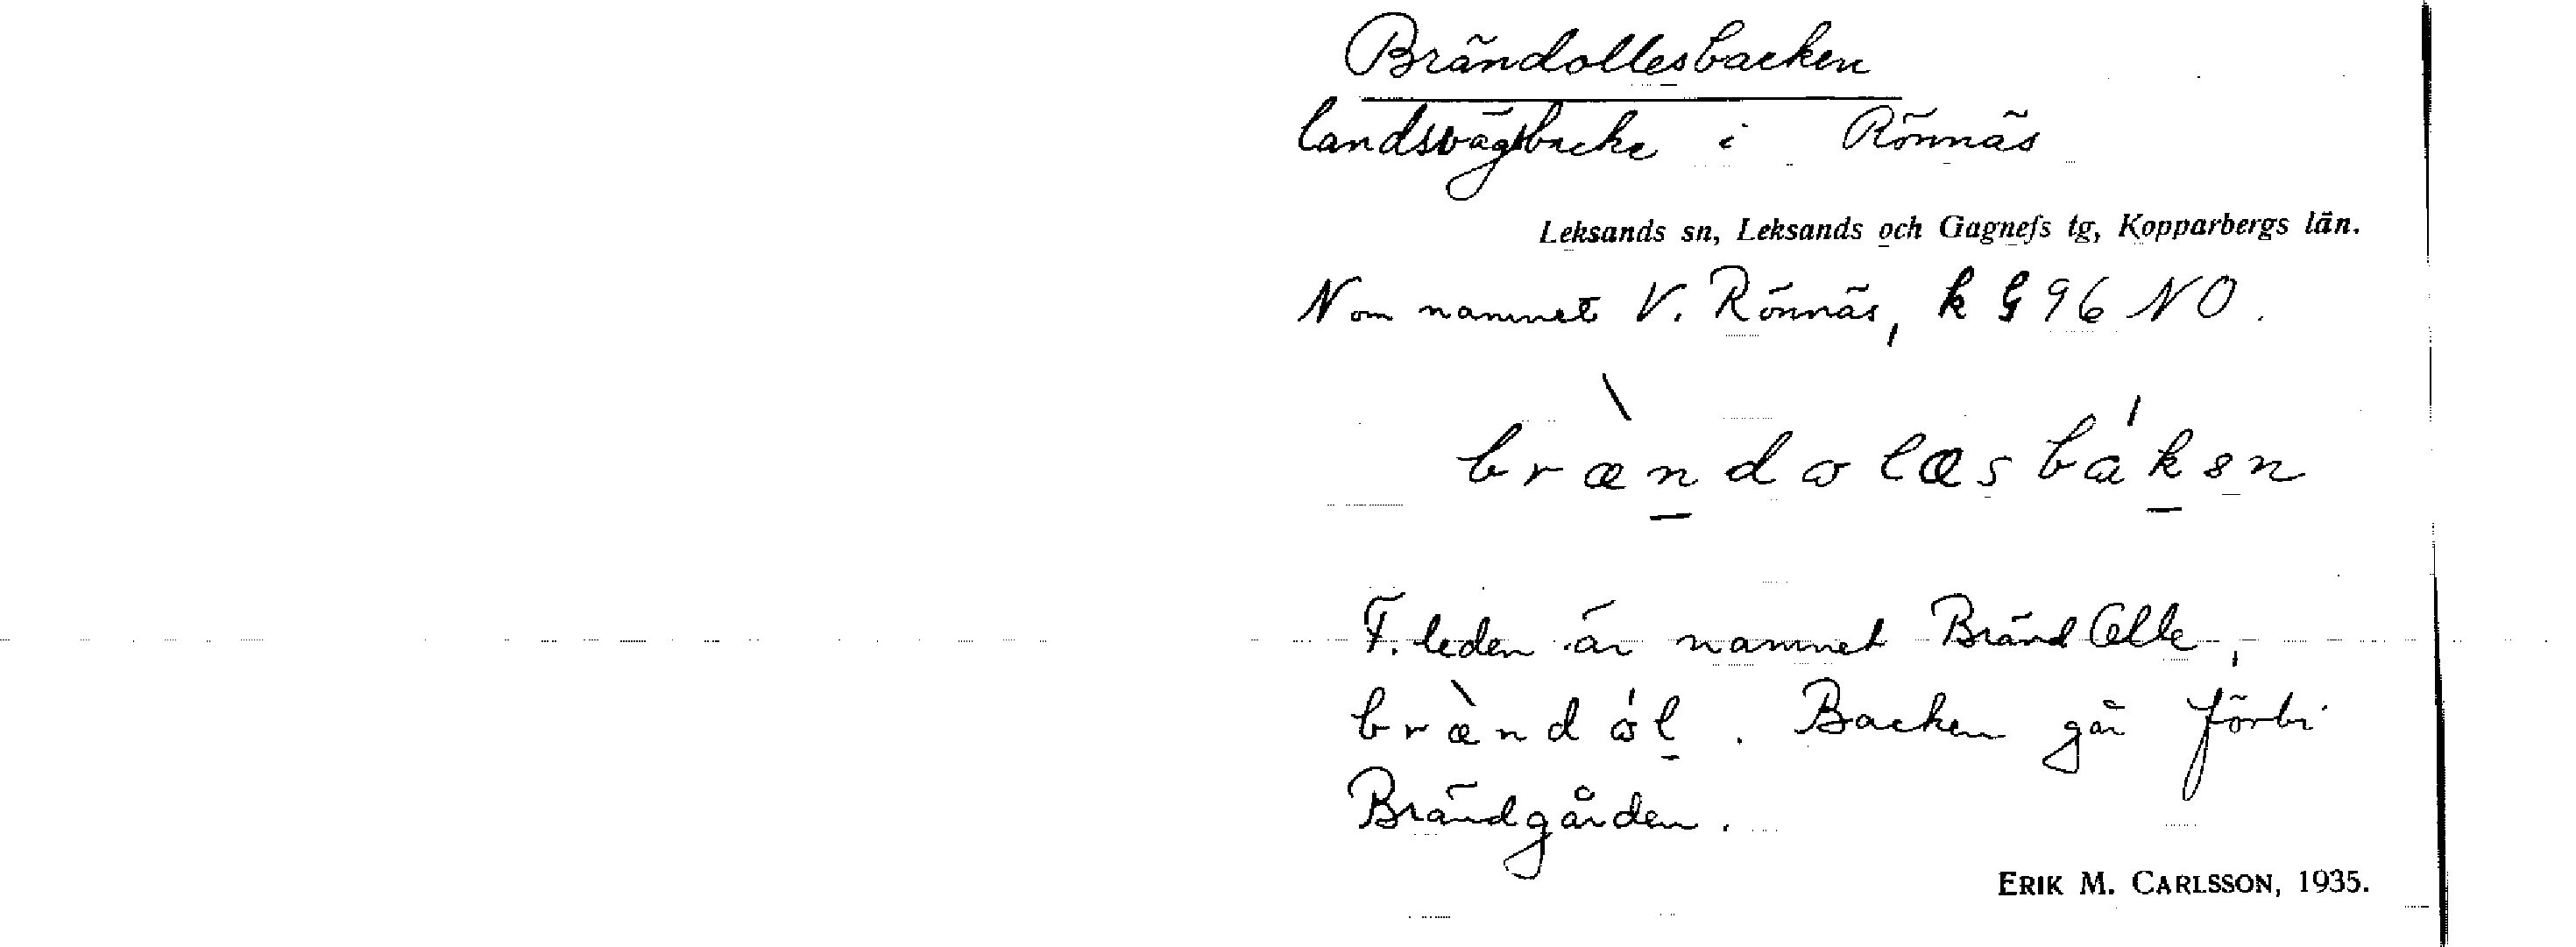 Brändollesbacken
landsvägsbacke i Rönnäs
Leksands sn, Leksands och Gagnefs tg, Kopparbergs län.
N om namnet V. Rönnäs, k G 96 NO.
brændωlæsbákən
F. leden är namnet Bränd Olle,
brændωl. Backen går förbi
Brändgården.
ERIK M. CARLSSON, 1935.